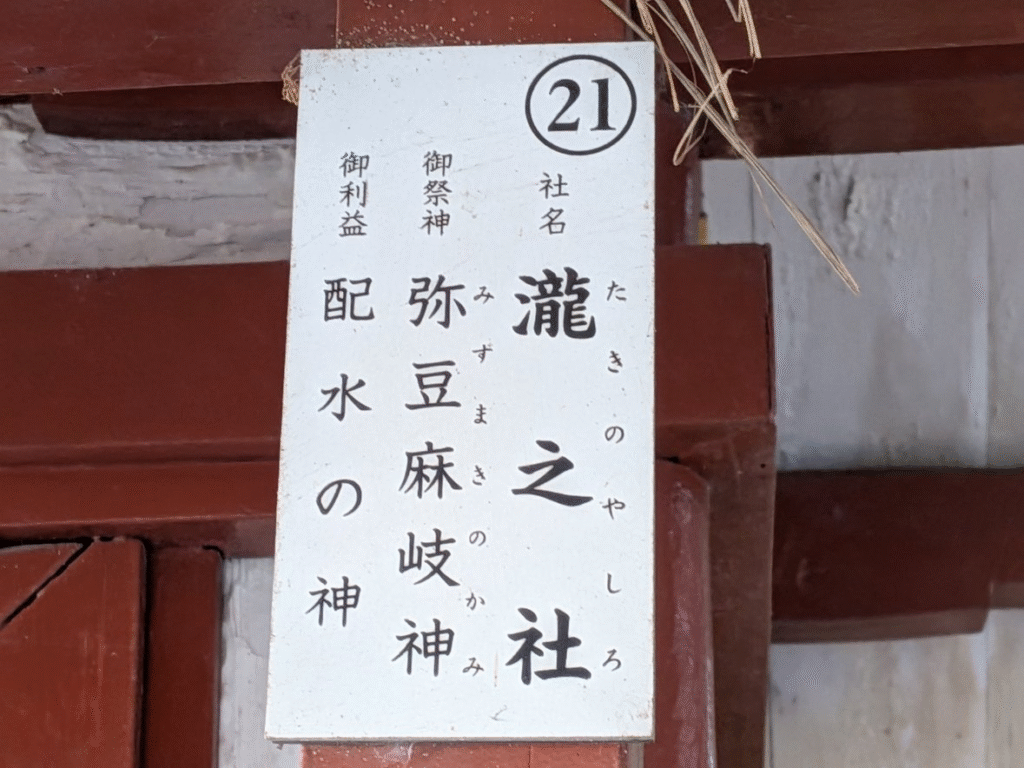 21
社名 瀧之社
たきのやしろ
御祭神 弥豆麻岐神
みずまきのかみ
御利益 配水の神